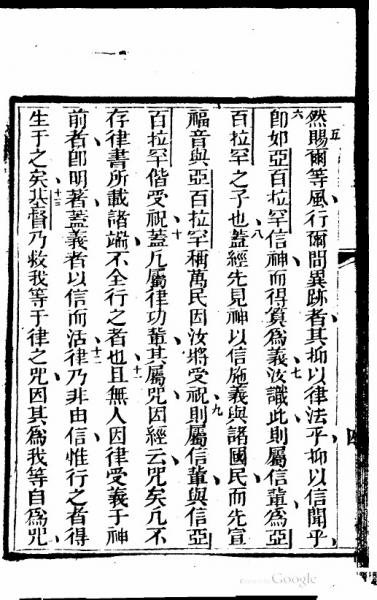 五
然賜爾等風行爾間異跡者其抑以律法乎抑以信聞乎
六
卽如亞百拉罕信神而得算爲義汝識此則屬信輩爲亞
八
百拉罕之子也蓋經先見神以信施義與諸國民而先宣
九
福音與亞百拉罕稱萬民因汝將受祝則屬信輩與信亞
十
百拉罕偕受祝蓋凡屬律功輩其屬咒因經云咒矣凡不
十一
存律書所載諸端不全行之者也且無人因律受義于神
十二
前者卽明著蓋義者以信而活律乃非由信惟行之者得
十三
生于之矣基督乃救我等于律之咒因其爲我等自爲咒
Google